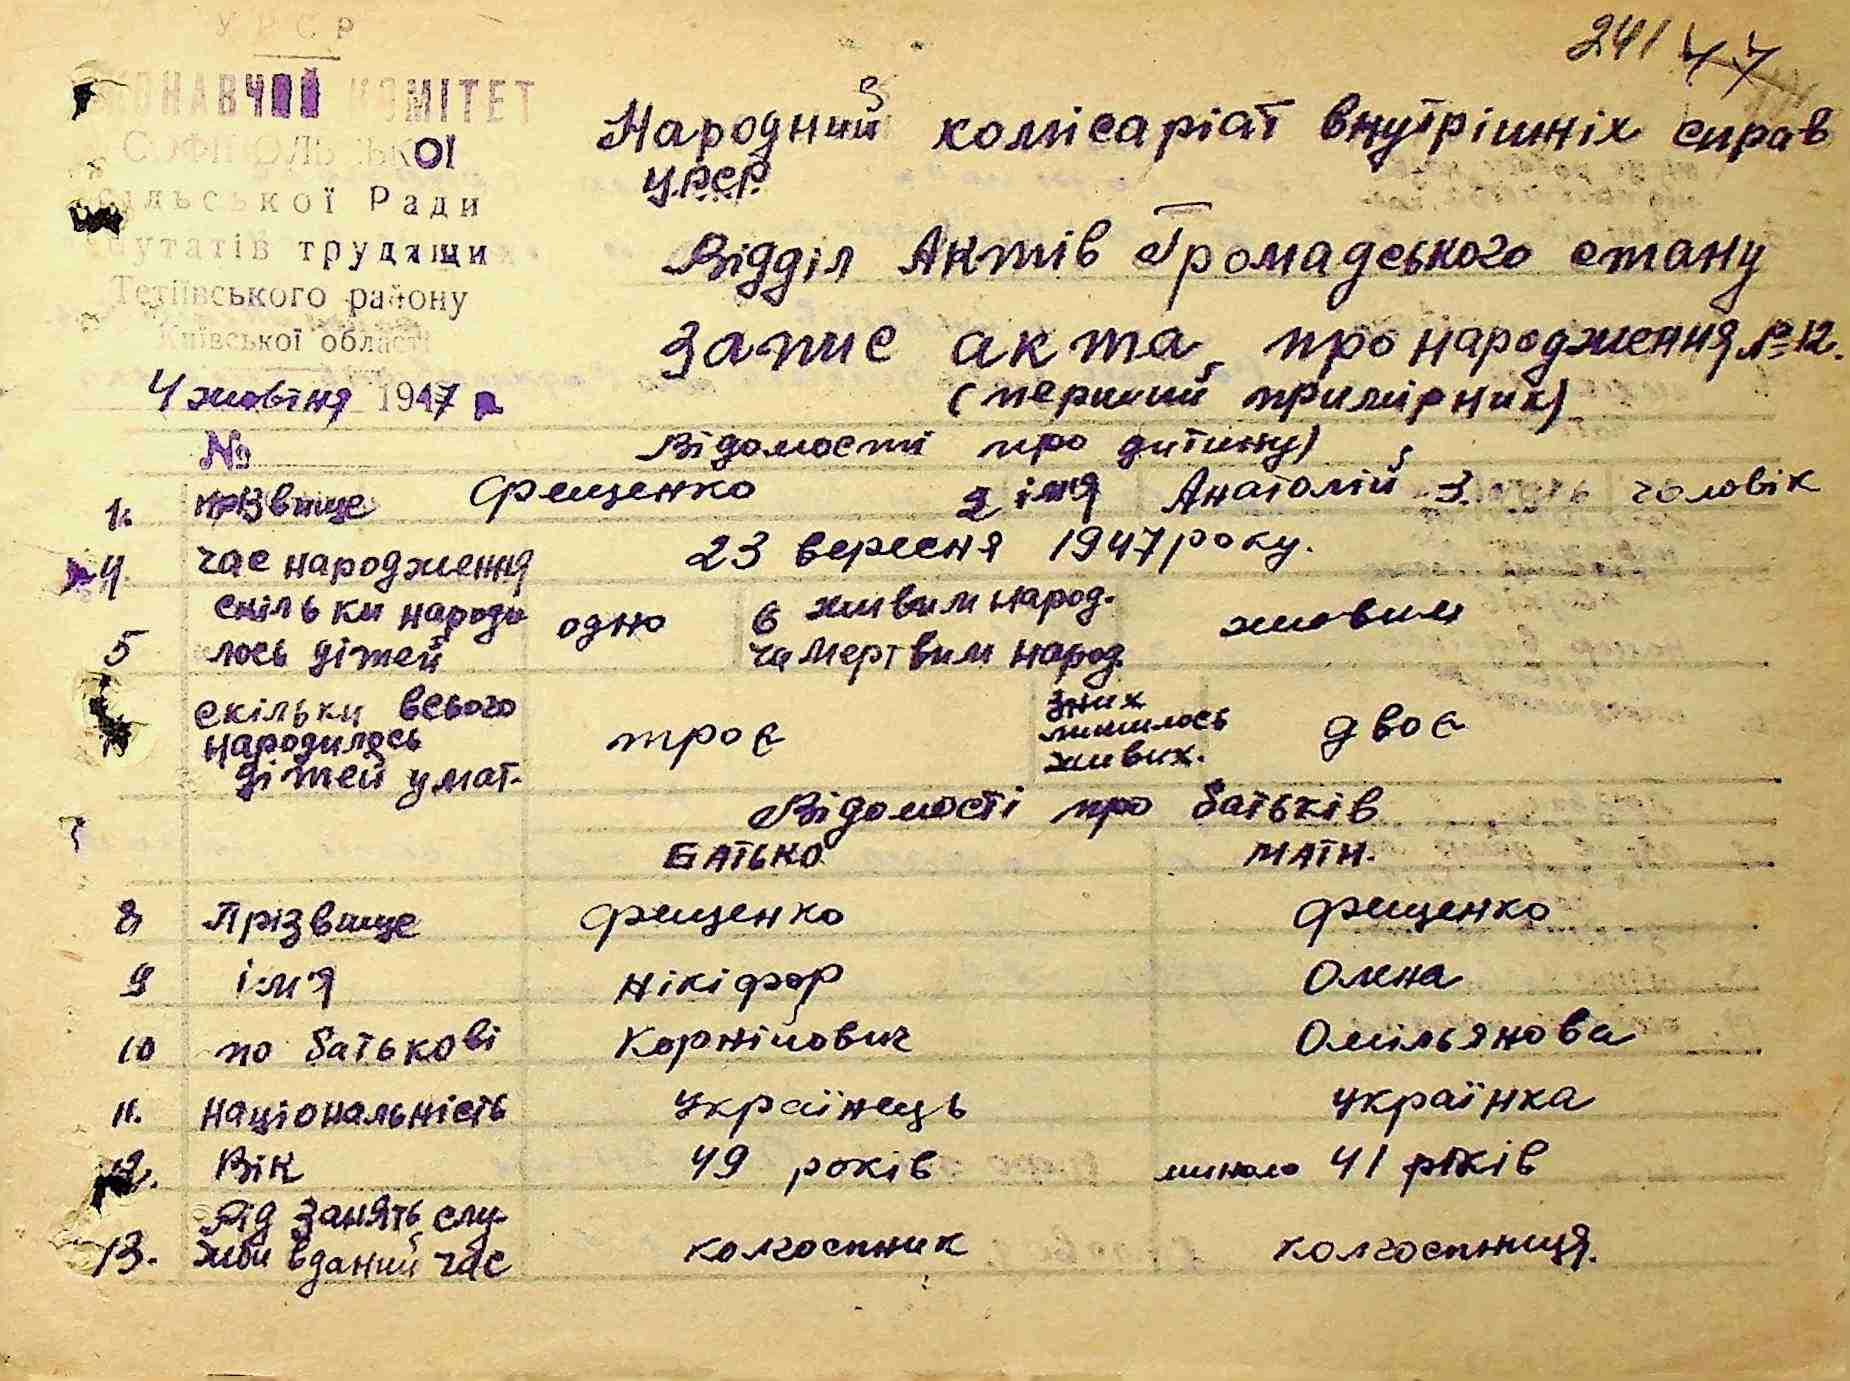 241 44
УРСР
ВИКОНАВЧИЙ КОМІТЕТ
СОФІПОЛЬСЬКОЇ
сільської Ради
депутатів трудящих
Тетіївського району
Київської області
4 жовтня 1947 р
№
Народний комісаріат внутрішніх справ
УРСР.
Відділ Актів Громадського стану
Запис акта про народження № 12.
(перший примірник)
Відомості про дитину)
1. прізвище Фещенко 2 ім'я Анатолій 3. чоловік
4. час народження 23 вересня 1947 року.
5 скільки народи лось дітей одно 6 живим народ. чи мертвим народ. живим
скільки всього народилось дітей у мат. троє з них лишилось живих. двоє
Відомості про батьків
БАТЬКО МАТИ.
8 Прізвище Фещенко Фещенко
9 ім'я Нікіфор Олена
10 по батькові Корнійович Омільянова
11. національність Українець Українка
12. Вік 49 років минало 41 років
13. Рід занять слу- жби в даний час колгоспник колгоспниця.